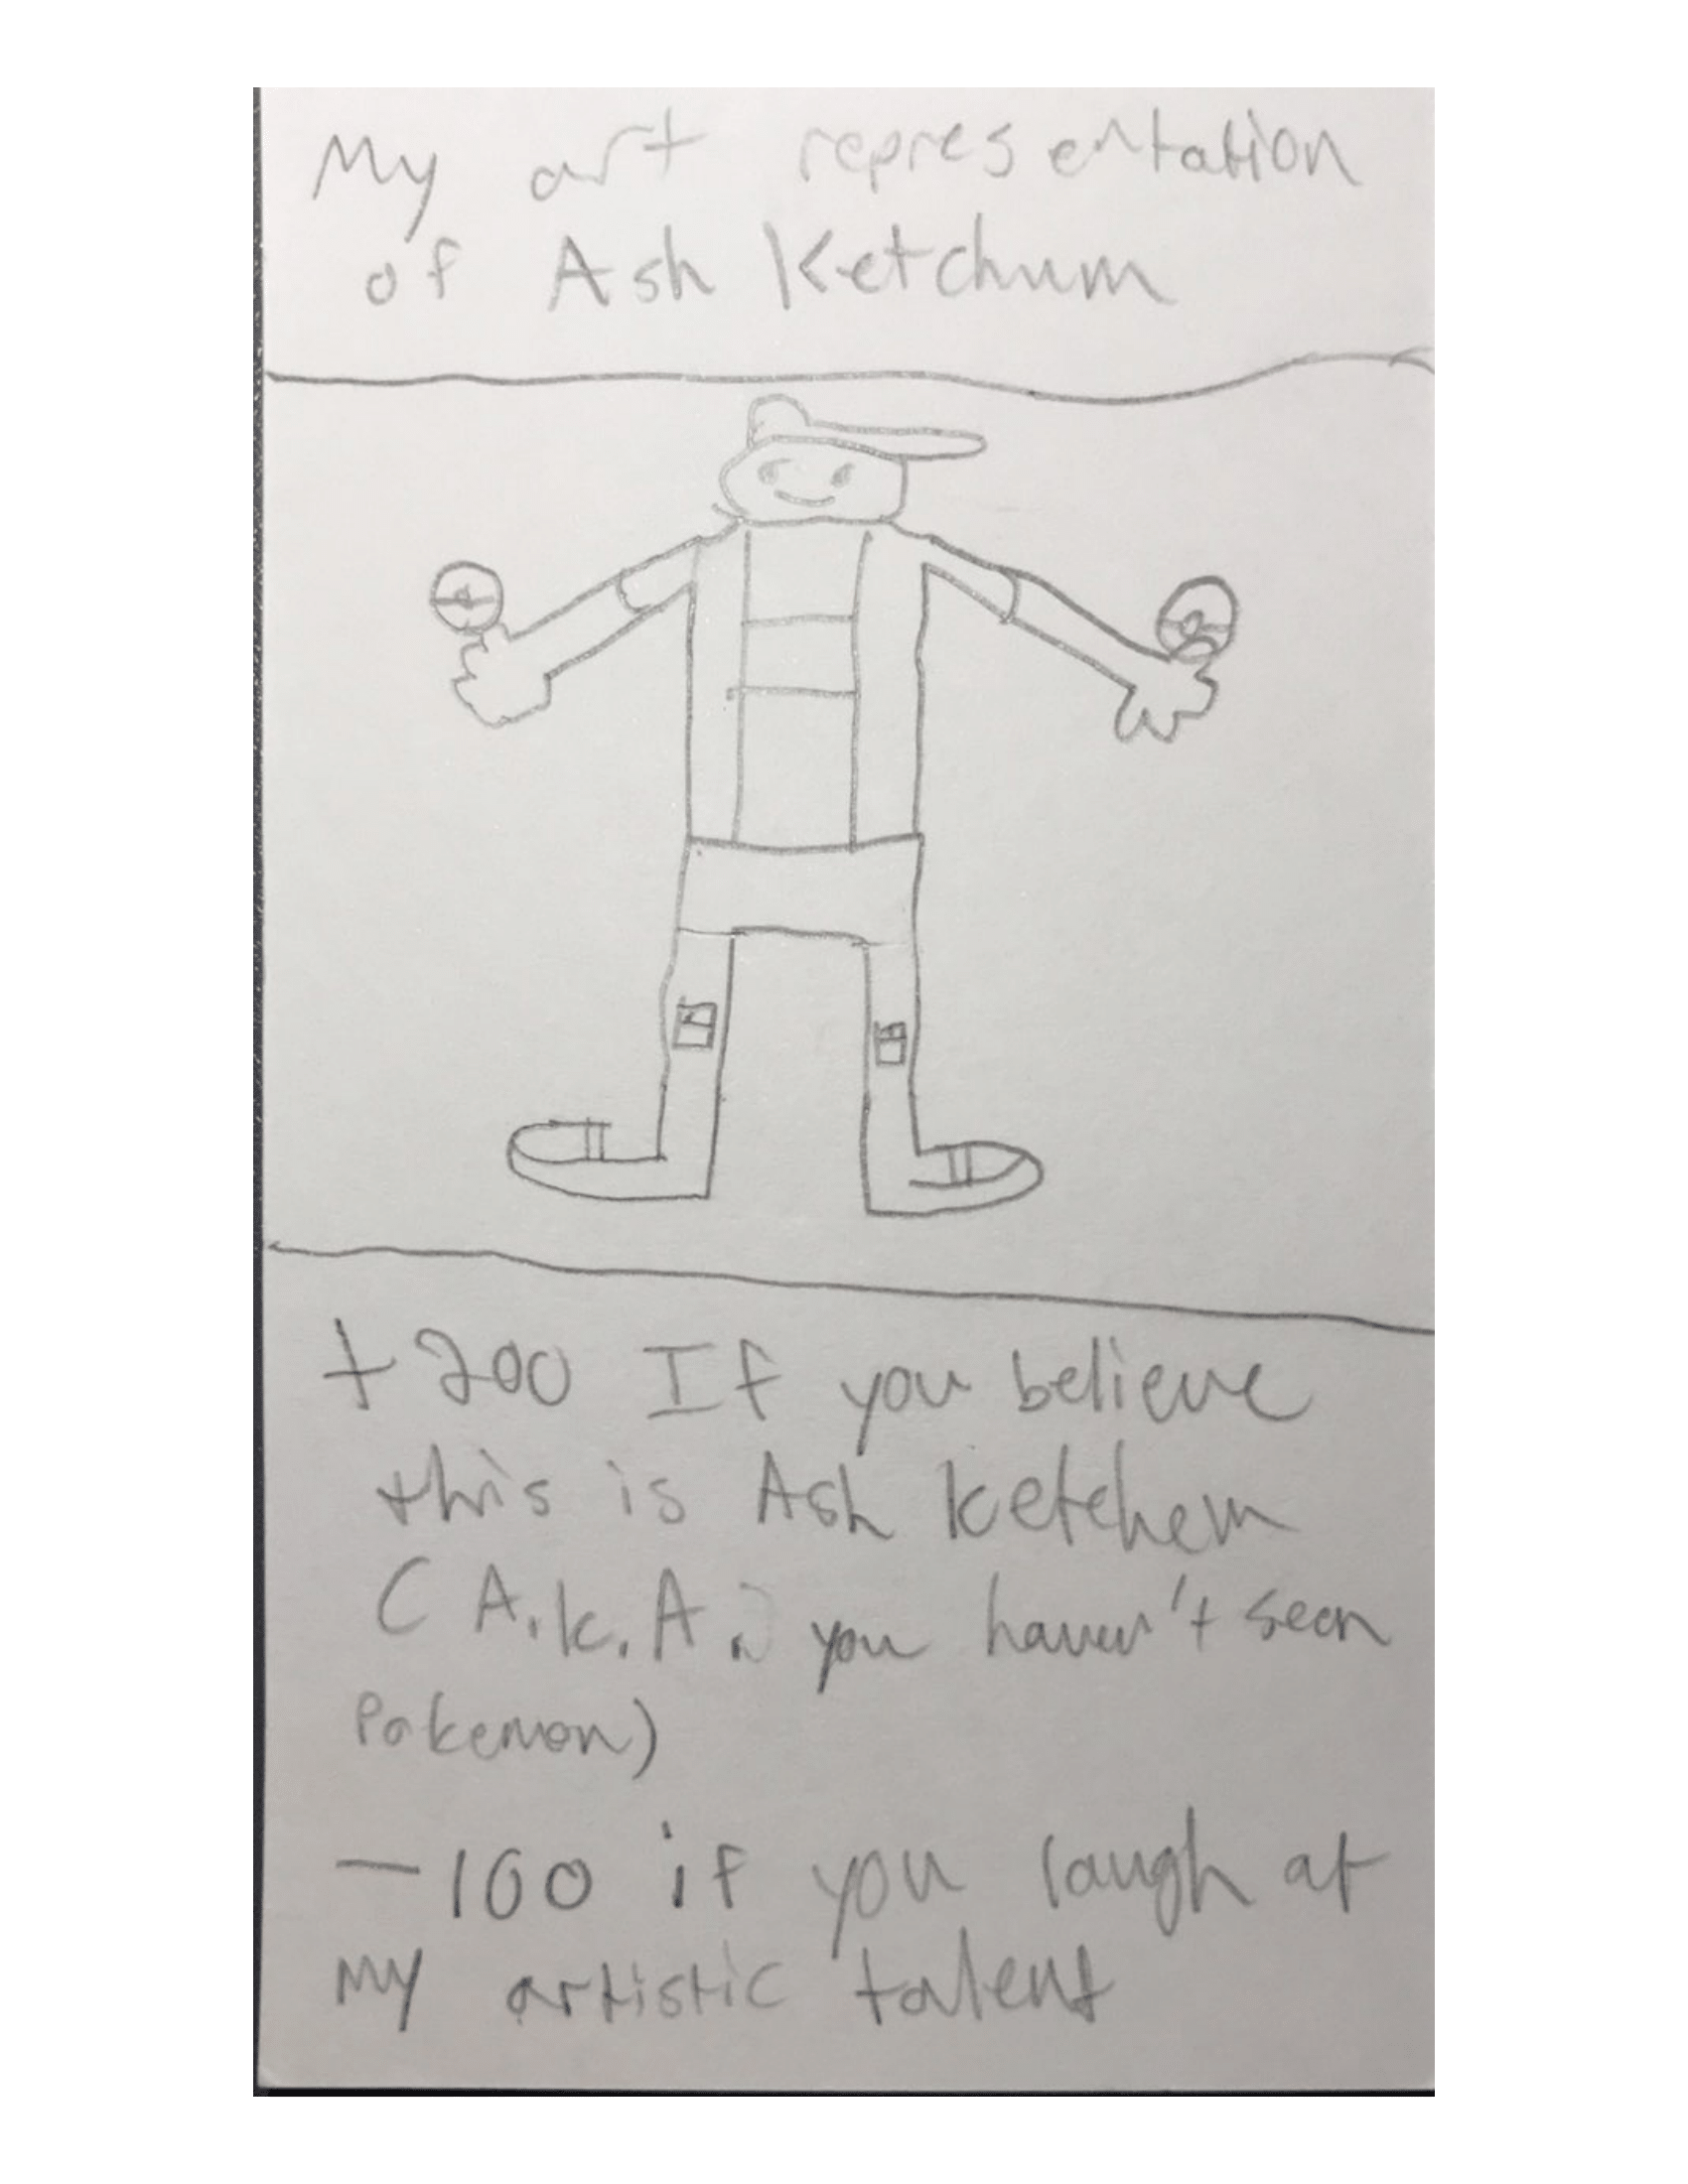 My art representation
of Ash Ketchum
+200 If you believe
this is Ash ketchem
(A.k.A. you haven't seen
Pokemon)
-100 if you laugh at
my artistic talent